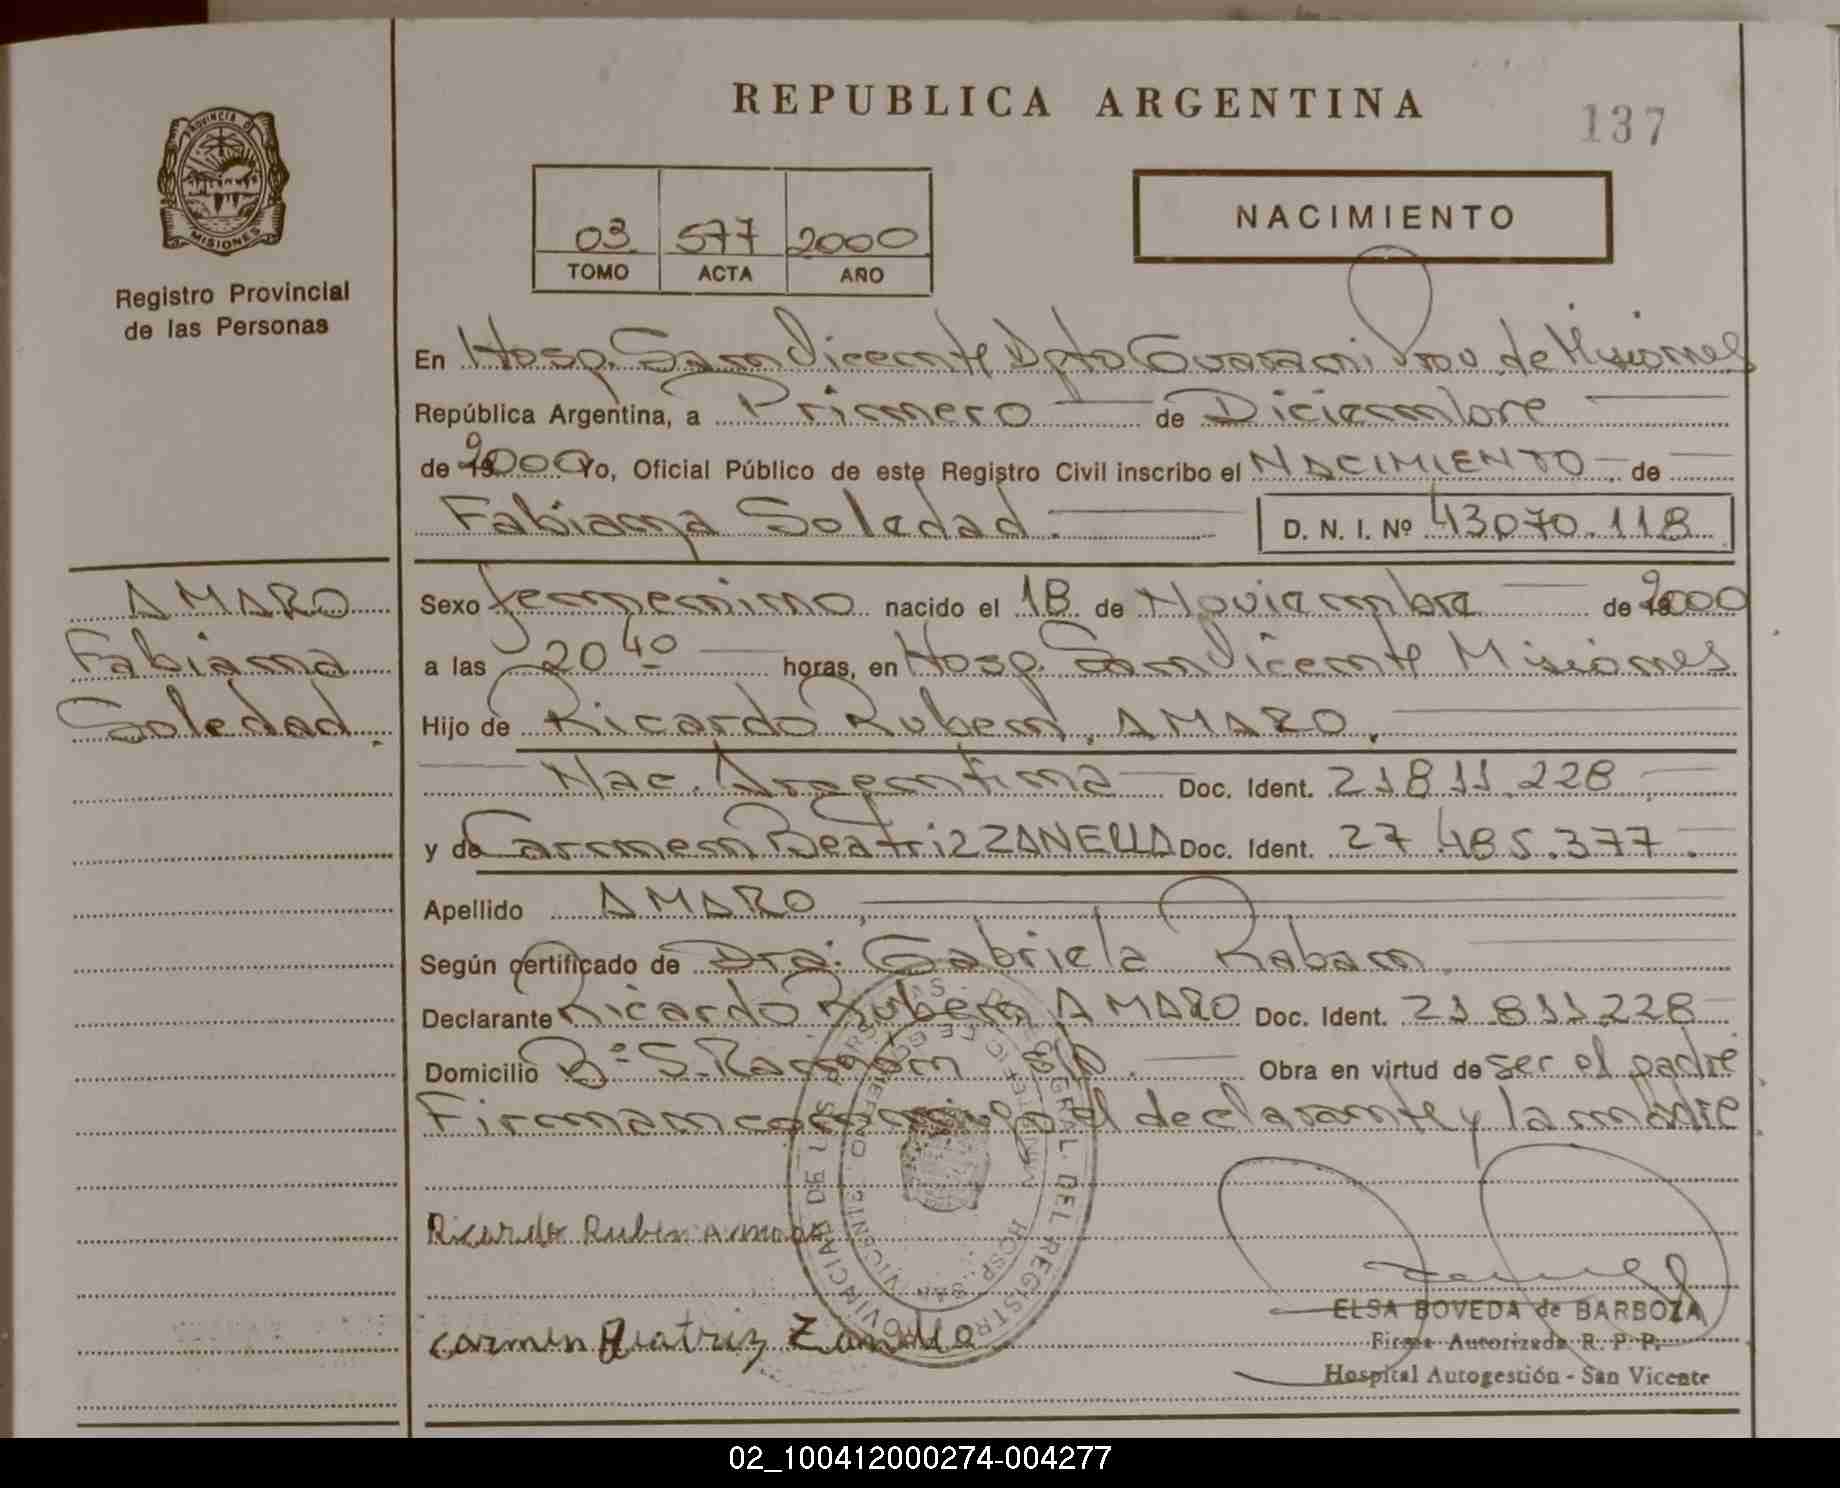 REPUBLICA ARGENTINA
137
PROVINCIA DE
MISIONES
Registro Provincial
de las Personas
03 577 2000
TOMO ACTA AÑO
NACIMIENTO
En Hosp. San Vicente Dpto Guarani Prov. de Misiones
República Argentina, a Primero de Diciembre
de 2000 Yo, Oficial Público de este Registro Civil inscribo el NACIMIENTO de
Fabiana Soledad. D. N. I. Nº 43.070.118
AMARO
Fabiana
Soledad.
Sexo femenino nacido el 18 de Noviembre de 2000
a las 20 40 horas, en Hosp. San Vicente Misiones
Hijo de Ricardo Ruben, AMARO.
Nac. Argentina Doc. Ident. 21.811.228
y de Carmen Beatriz ZANELLA Doc. Ident. 27.485.377.
Apellido AMARO,
Según certificado de Dra: Gabriela Raban
Declarante Ricardo Ruben AMARO Doc. Ident. 21.811.228
Domicilio Bº S. Ramón S/D. Obra en virtud de ser el padre
Firman conmigo el declarante y la madre
Ricardo Ruben Amaro
Carmen Beatriz Zanella
HOSP. SAN VICENTE
ELSA BOVEDA de BARBOZA
Firma Autorizada R. P. P.
Hospital Autogestión - San Vicente
02_100412000274-004277